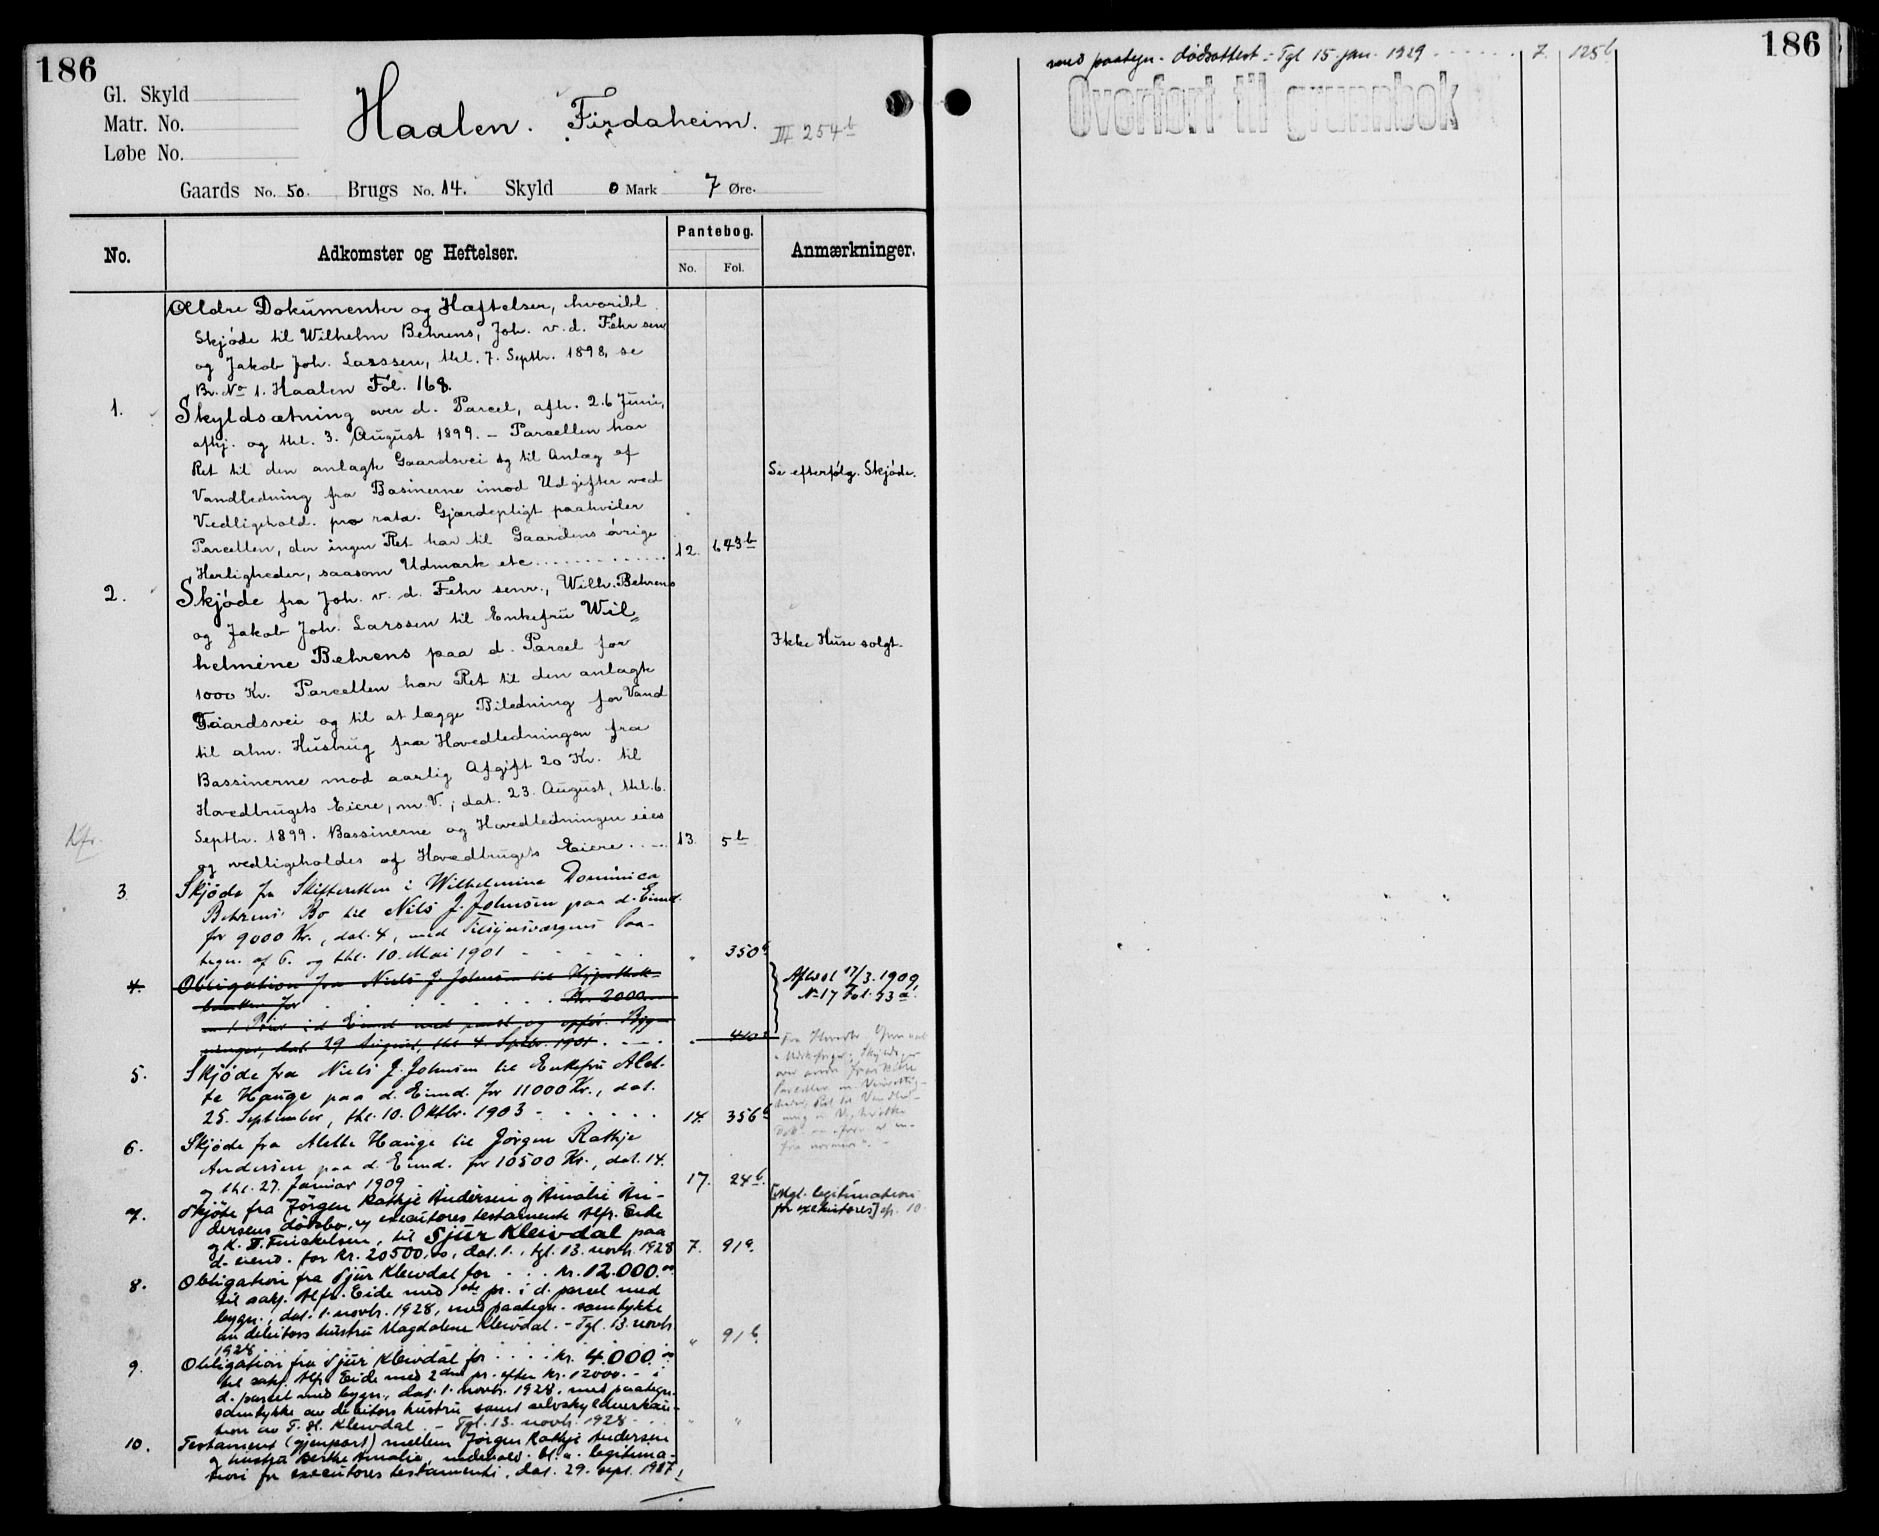 186
Gl. Skyld
Matr. No.
Løbe No.
Haalen. Firdaheim.
III 254b
Gaards No. 50. Brugs No. 14. Skyld 0 Mark 7 Øre.
No.
Adkomster og Heftelser.
Pantebog.
No. Fol.
Anmærkninger.
Ældre Dokumenter og Hæftelser, hvoribl.
Skjøde til Wilhelm Behrens, Joh. v. d. Fehr senr
og Jakob Joh. Larssen, thl. 7. Septbr. 1898, se
Br. No 1. Haalen Fol. 168.
1. Skyldsætning over d. Parcel, afh. 26 Juni,
afhj. og thl. 3. August 1899. – Parcellen har
Ret til den anlagte Gaardsvei og til Anlæg af
Se efterfølg. Skjøde.
Vandledning fra Basinerne imod Udgifter ved
Vedligehold. pro rata. Gjærdepligt paahviler
Parcellen, der ingen Ret har til Gaardens øvrige
Herligheder, saasom Udmark etc. 12. 643b
2. Skjøde fra Joh. v. d. Fehr senr., Wilh. Behrens
og Jakob Joh. Larssen til Enkefru Wil=
helmine Behrens paa d. Parcel for
Ikke Huse solgt.
1000 Kr. Parcellen har Ret til den anlagte
Gaardsvei og til at lægge Biledning for Vand
til alm. Husbrug fra Hovedledningen fra
Bassinerne mod aarlig Afgift 20 Kr. til
Hovedbrugets Eiere, m. V.; dat. 23. August, thl. 6.
Septbr. 1899. Bassinerne og Hovedledningen eies
og vedligeholdes af Hovedbrugets Eiere. 13. 5b
3. Skjøde fra Skifteretten i Wilhelmine Dominica
Behrens' Bo til Nils J. Johnsen paa d. Eiend.
for 9000 Kr., dat. 4, med Tilsynsværgens Paa-
tegn. af 6. og thl. 10. Mai 1901 " 350b
4. Obligation fra Niels J. Johnsen til Hypothek-
banken for Kr. 2000
Aflæst 17/3. 1909,
No 17 Fol. 53a.
m 1 Prior. i d. Eiend. med paast. og opför. Byg-
ninger, dat. 29 August, thl 4. Septbr. 1901. " 440a
5. Skjøde fra Niels J. Johnsen til Enkefru Alet-
te Hauge paa d. Eiend. for 11000 Kr., dat.
25. September, thl. 10. Oktbr. 1903 14. 356b
6. Skjøde fra Alette Hauge til Jørgen Rathje
Andersen paa d. Eiend. for 10500 Kr., dat. 14.
og thl. 27. Januar 1909 17. 24b.
7. Skjøte fra Jörgen Rathje Andersen og Amalie An-
dersens dödsbo, v/ executores testamente Alfr. Eide
[Mgl. legitimation
for exekutores] cfr. 10.
til Sjur Kleivdal paa
d. eiend. for kr. 20500,00, dat. 1., tgl. 13. novbr. 1928 7. 91a.
8. Obligation fra Sjur Kleivdal for kr. 12.000.00
til sakf. Alfr. Eide med 1ste pr. i d. parcel med
bygn., dat. 1. novbr. 1928, med paategn. samtykke
av debitors hustru Magdalene Kleivdal. – Tgl. 13. novbr.
1928 " 91b.
9. Obligation fra Sjur Kleivdal for kr. 4.000.00
til sakf. Alfr. Eide med 2den pr. efter kr. 12000.- i
d. parcel med bygn., dat. 1. novbr. 1928, med paategn.
samtykke av debitors hustru samt selvskyldnerkau-
tion av Kleivdal. – Tgl. 13. novbr. 1928 " "
10. Testament (gjenpart) mellem Jörgen Rathje Andersen
og hustru Amalie, indehold. bl. a. legitima-
tion for executores testamenti, dat. 29. sept. 1927,
186
med paategn. dødsattest – Tgl 15. jan. 1929 7. 125b
Overført til grunnbok